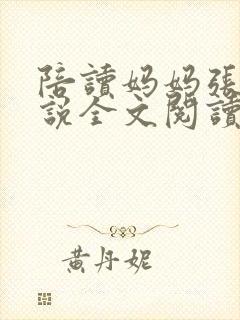 陪讀妈妈張
說全文閱讀
黄丹妮